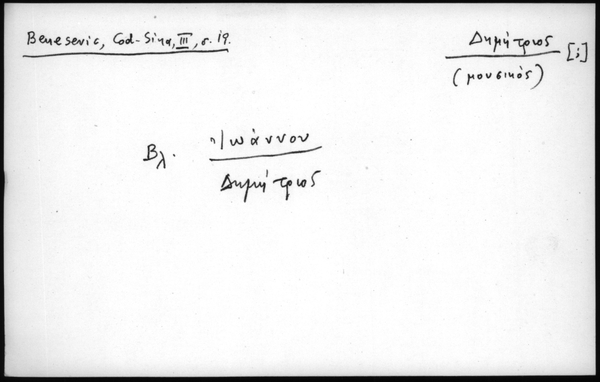 Benesevic, Cod-Sina, III, σ. 19.
Δημήτριος
(μουσικός) [;]
Βλ. Ἰωάννου
Δημήτριος